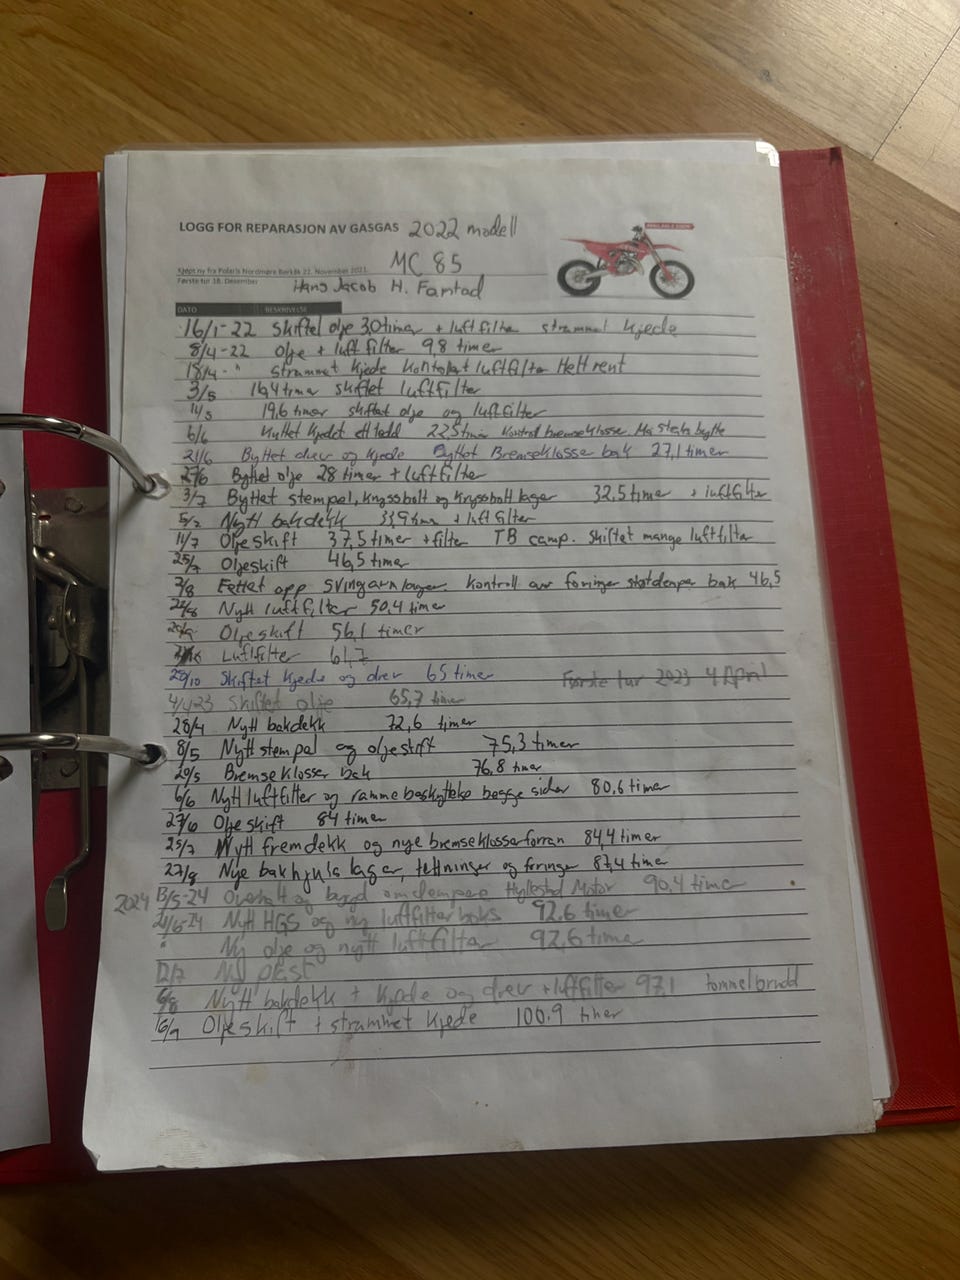 LOGG FOR REPARASJON AV GASGAS 2022 modell
MC 85
Kjøpt ny fra Polaris Nordmøre Bærkåk 22. November 2021
Første tur 18. Desember
Hans Jacob H. Fantad
DATO BESKRIVELSE
16/1-22 Skiftet olje 3,0 timer + luftfilter strammet kjede
8/4-22 Olje + luftfilter 9,8 timer
18/4 - " strammet kjede kontrolert luftfilter Helt rent
3/5 16,4 timer skiftet luftfilter
11/5 19,6 timer skiftet olje og luftfilter
6/6 Kuttet kjedet ett ledd 22,5 timer kontroll bremseklosser. Må straks bytte
21/6 Byttet drev og kjede Byttet Bremseklosser bak 27,1 timer
27/6 Byttet olje 28 timer + luftfilter
3/7 Byttet stempel, kryssbolt og kryssbolt lager 32,5 timer + luftfilter
5/7 Nytt bakdekk 33,9 timer + luftfilter
11/7 Oljeskift 37,5 timer + filter TB camp. skiftet mange luftfilter
25/7 Oljeskift 46,5 timer
2/8 Fettet opp svingarmlager. Kontroll av foringer støtdemper bak 46,5
Nytt luftfilter 50,4 timer
Oljeskift 56,1 timer
Luftfilter 61,7
29/10 Skiftet kjede og drev 65 timer Første tur 2023 4 April
4/4-23 Skiftet olje 65,7 timer
28/4 Nytt bakdekk 72,6 timer
8/5 Nytt stempel og oljeskift 75,3 timer
20/5 Bremseklosser bak 76,8 timer
6/6 Nytt luftfilter og ramme beskyttelse begge sider 80,6 timer
27/6 Oljeskift 84 timer
25/7 Nytt fremdekk og nye bremseklosser forran 84,4 timer
27/8 Nye bakhjuls lager, tettninger og foringer 87,4 timer
2024 13/5-24 Overhalt og bygd om dempere Hyllestad Motor 90,4 timer
21/6-24 Nytt HGS og ny luftfilterboks 92,6 timer
" Ny olje og nytt luftfilter 92,6 timer
12/7 Ny
6/8 Nytt bakdekk + kjede og drev + luftfilter 97,1 tommelbrudd
16/9 Oljeskift + strammet kjede 100,9 timer